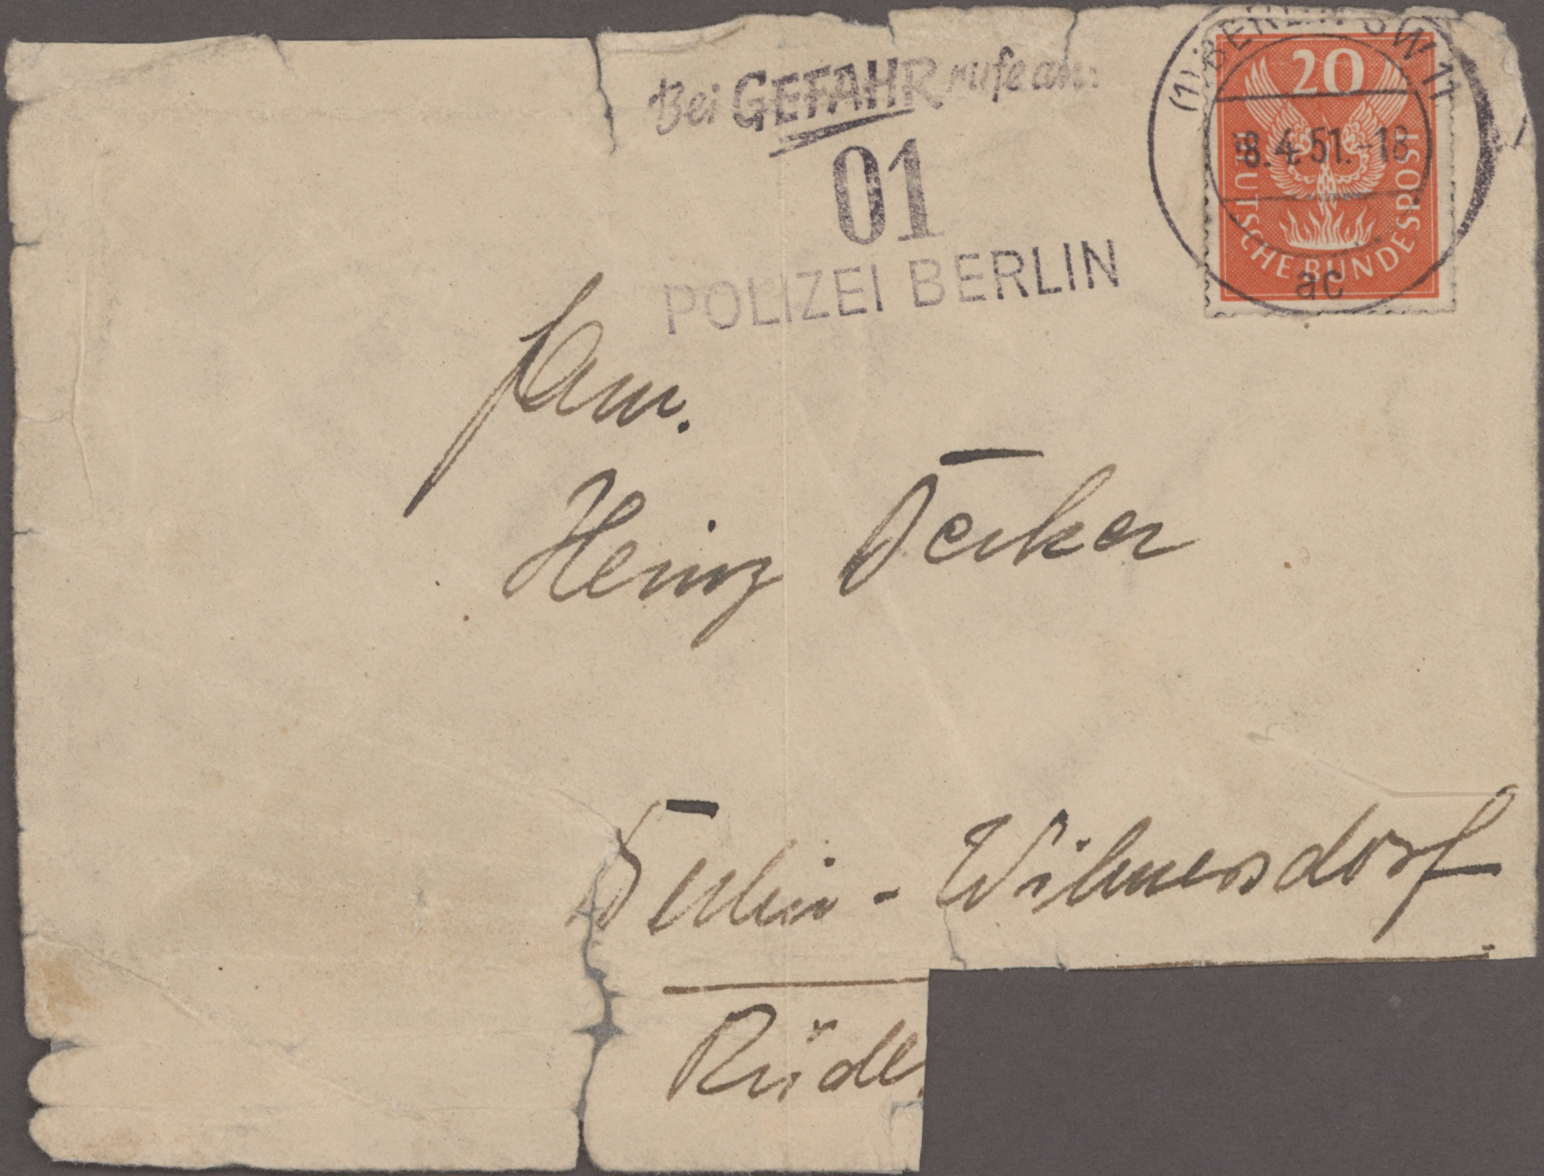 Bei GEFAHR rufe an:
01
POLIZEI BERLIN
(1) BERLIN SW 11
8.4.51.-18
ac
20
DEUTSCHE BUNDESPOST
Fam.
Heinz Decker
Berlin - Wilmersdorf
Rüde